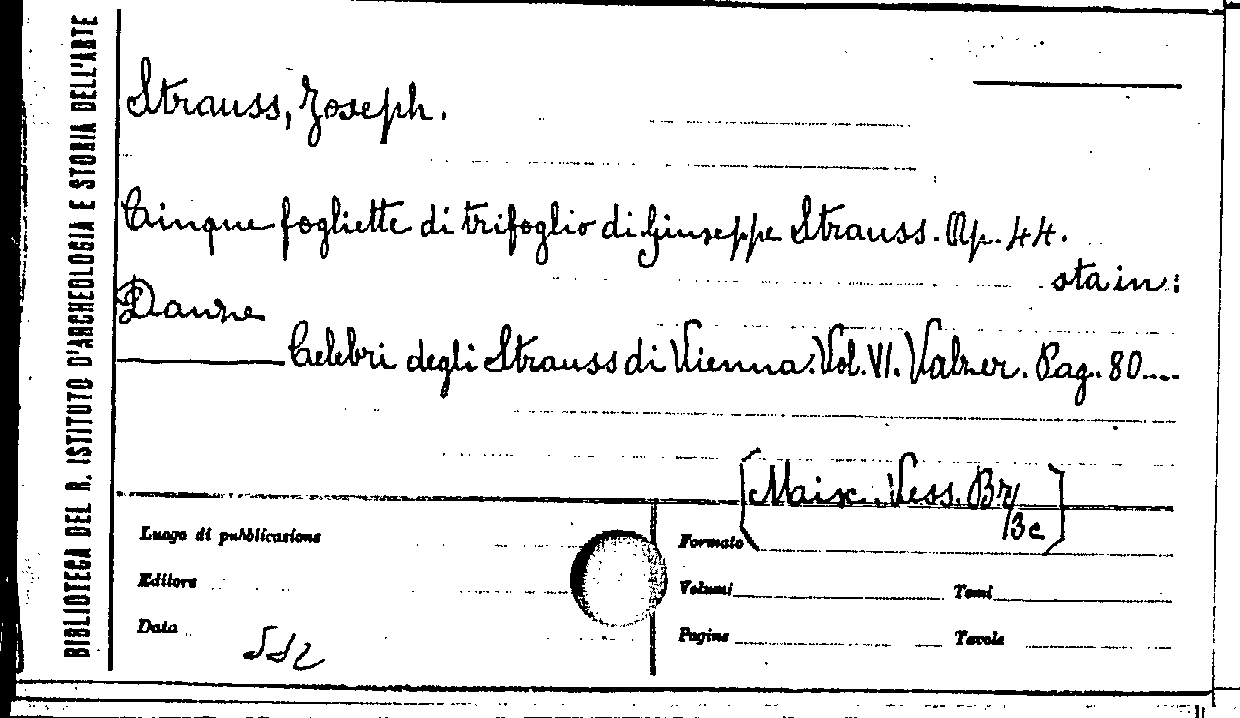 BIBLIOTECA DEL R. ISTITUTO D'ARCHEOLOGIA E STORIA DELL'ARTE
Strauss, Joseph.
Cinque fogliette di trifoglio di Giuseppe Strauss. Op. 44.
sta in:
Danze
Celebri degli Strauss di Vienna. Vol. VI. Valzer. Pag. 80....
[Maix. Vess. Br/3e]
Luogo di pubblicazione
Formato
Editore
Volumi
Tomi
Data
Pagine
Tavole